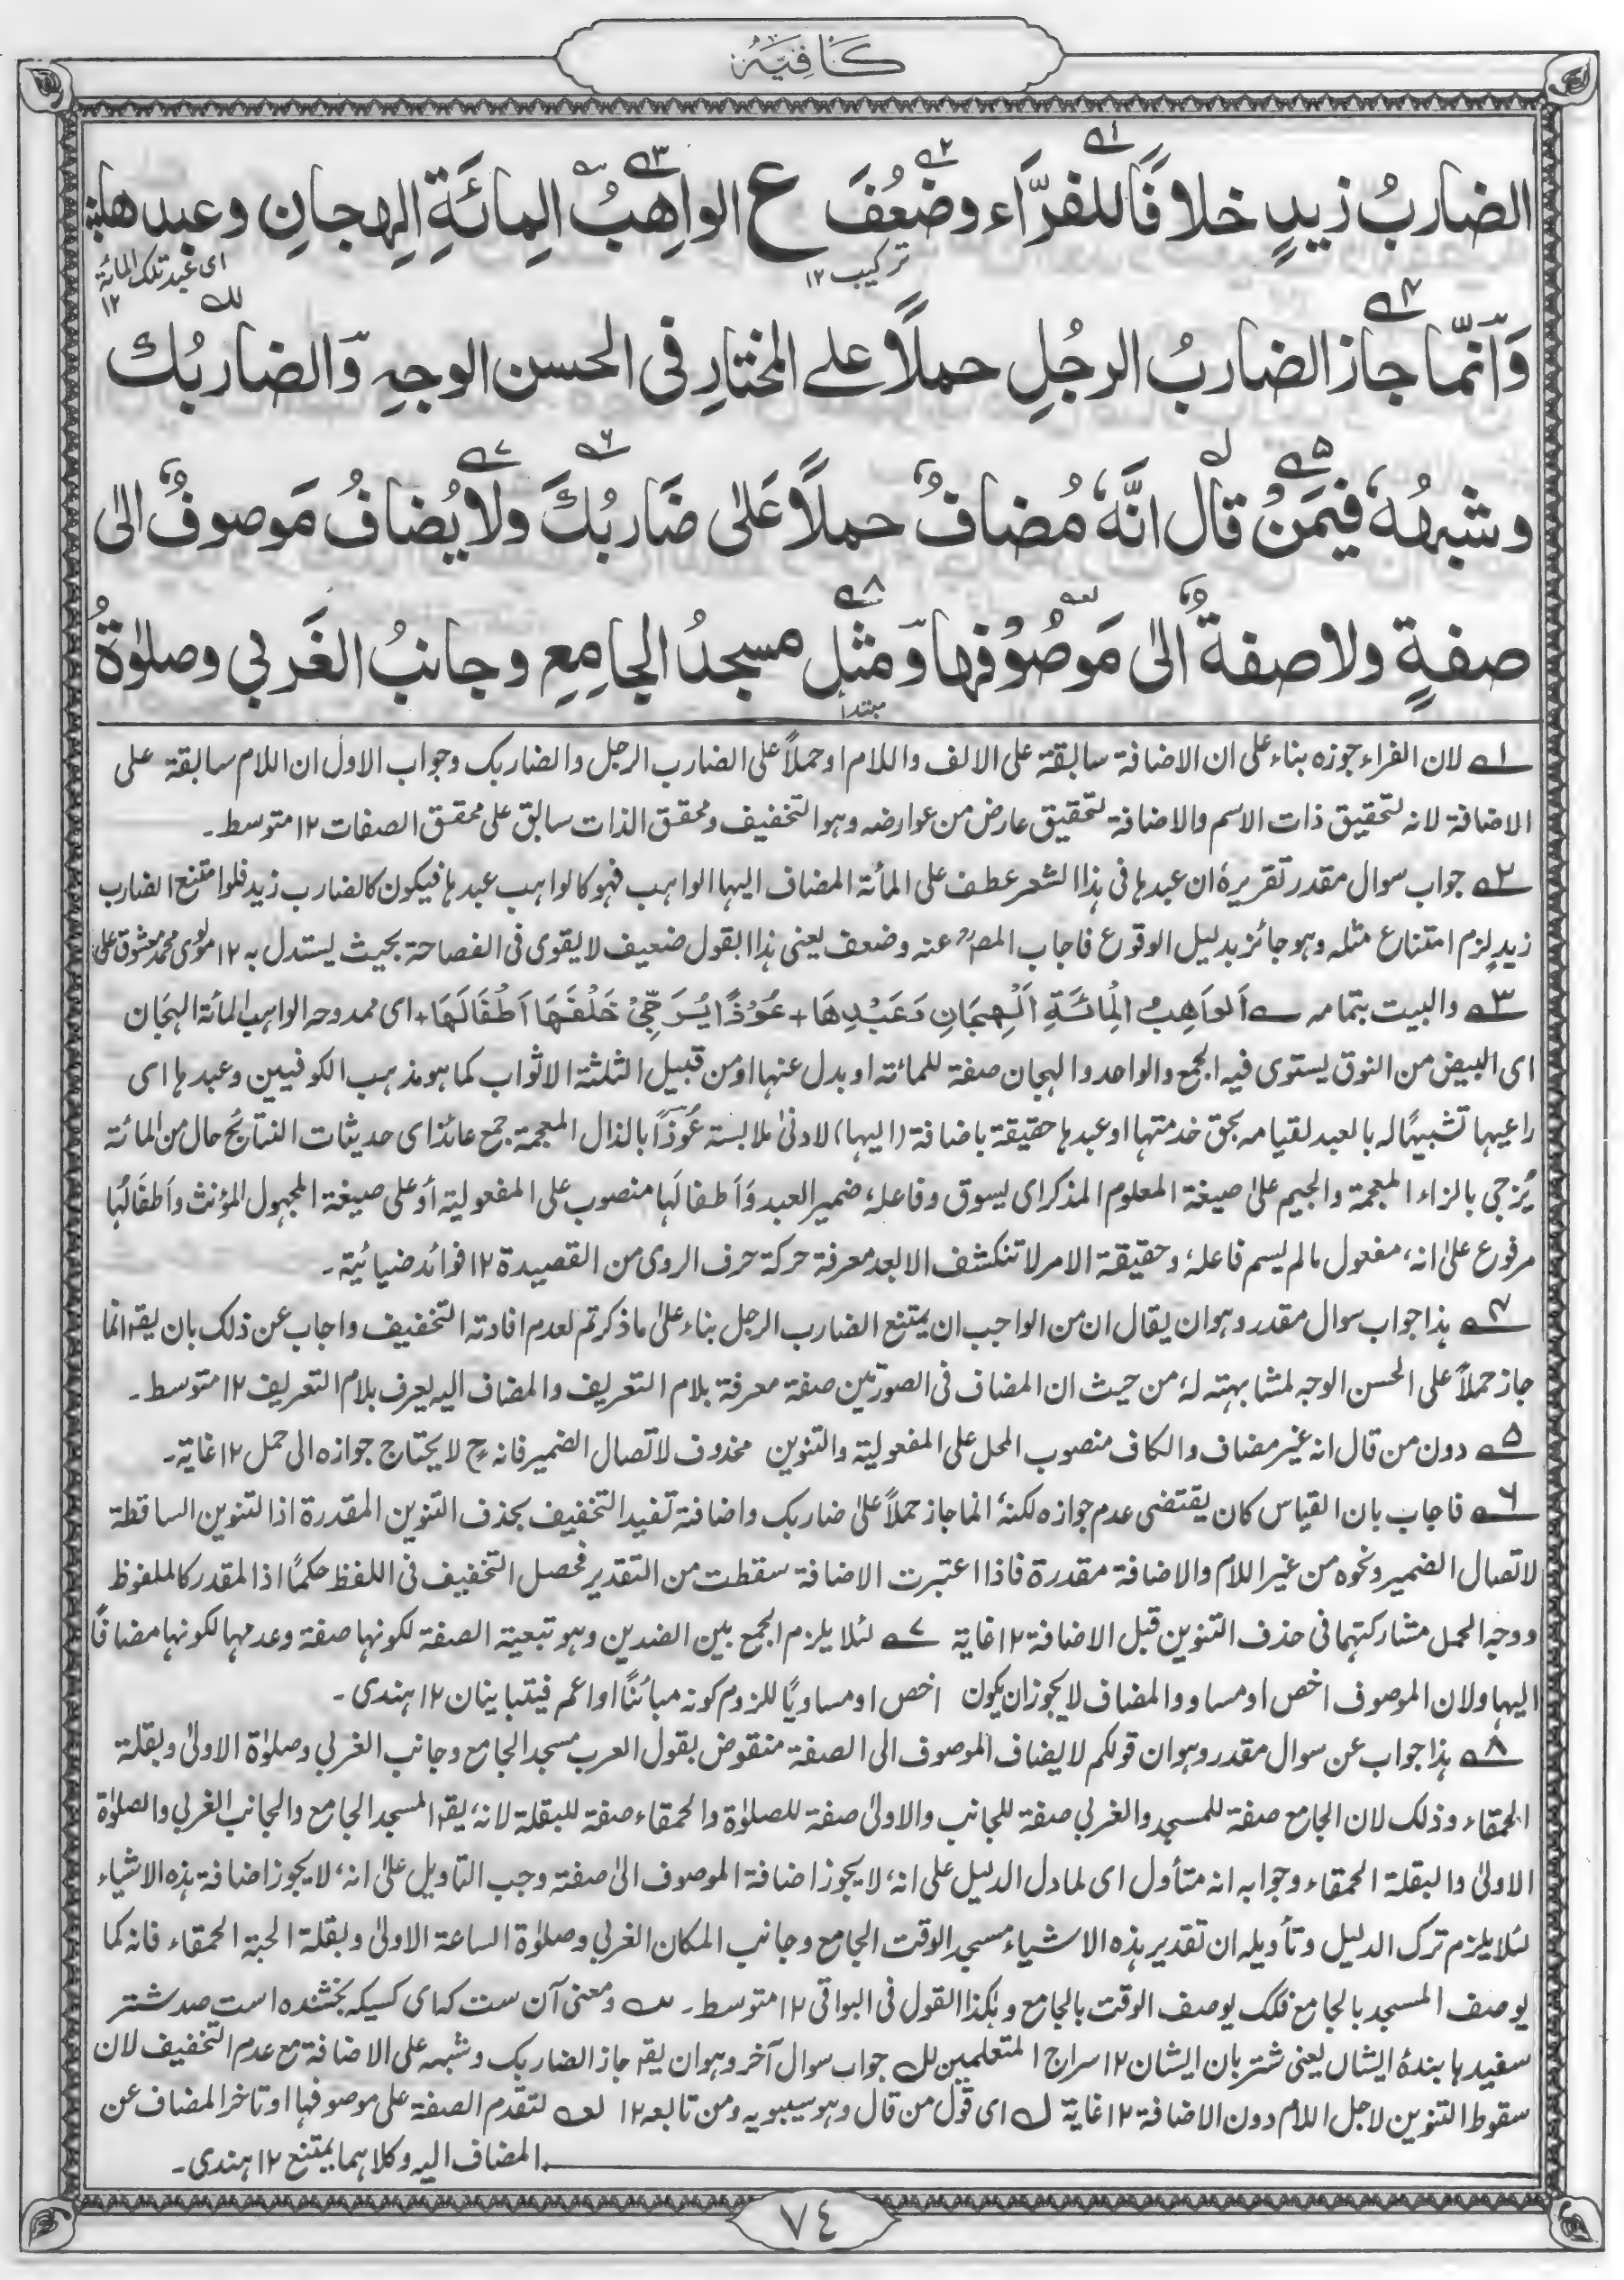 كَافِيَہ
الضاربُ زيدٍ خلافًا للفرّاء وضعُفَ ع الواهِبُ المِائَةِ الهِجانِ وعبدها
تركيب ١٢
اى عبد تلك المائة ١٢
وَاِنّما جاز الضاربُ الرجُلِ حملاً على المختارِ فى الحسن الوجهِ وَالضاربُك
وشبهُهٗ فيمَنْ قال انَّهٗ مُضافٌ حملاً عَلىٰ ضَاربُكَ ولا يُضافُ مَوصوفٌ الىٰ
صفةٍ ولا صفةٌ الىٰ مَوصُوْفها وَمثل مسجدُ الجامِعِ وجانبُ الغَربي وصلوٰةُ
مبتدا
١ لان الفراء جوزه بناء على ان الاضافة سابقة على الالف واللام او حملاً على الضارب الرجل والضاربك وجواب الاول ان اللام سابقة على
الاضافة لانه لتحقيق ذات الاسم والاضافة لتحقيق عارض من عوارضه وهو التخفيف ومحقق الذات سابق على محقق الصفات ١٢ متوسط۔
٢ جواب سوال مقدر تقريرهٗ ان عبدها فى هذا الشعر عطف على المائة المضاف اليها الواهب فهو كالواهب عبدها فيكون كالضارب زيد فلو امتنع الضارب
زيدٍ لزم امتناع مثله وهو جائز بدليل الوقوع فاجاب المصؒ عنه وضعف يعنى هذا القول ضعيف لا يقوى فى الفصاحة بحيث يستدل به ١٢ مولوى محمد معشوق على
٣ والبيت بتمامه اَلوَاهِبُ الْمِائَةِ اَلْهِجَانِ وَعَبْدِهَا + عُوْذًا يُزَجِّىْ خَلْفَهَا اَطْفَالَهَا + اى ممدوحه الواهب المائة الهجان
اى البيض من النوق يستوى فيه الجمع والواحد والهجان صفة للمائة او بدل عنها او من قبيل الثلثة الاثواب كما هو مذهب الكوفيين وعبدها اى
راعيها تشبيهًا له بالعبد لقيامه بحق خدمتها او عبدها حقيقة باضافة (اليها) لادنىٰ ملابسته عُوذًا بالذال المعجمة جمع عائذ اى حديثات النتائج حال من المائة
يُزجى بالزاء المعجمة والجيم علىٰ صيغة المعلوم المذكر اى يسوق وفاعلهٗ ضمير العبد وَاَطفالَها منصوب على المفعولية اَو على صيغة المجهول المؤنث واَطفَالُها
مرفوع علىٰ انهٗ مفعول مالم يسم فاعلهٗ وحقيقة الامر لا تنكشف الا بعد معرفة حركة حرف الروى من القصيدة ١٢ فوائد ضيائية۔
٤ هذا جواب سوال مقدر وهو ان يقال ان من الواجب ان يمتنع الضارب الرجل بناء علىٰ ما ذكرتم لعدم افادته التخفيف واجاب عن ذلك بان يقؔ انما
جاز حملاً على الحسن الوجه لمشابهته لهٗ من حيث ان المضاف فى الصورتين صفة معرفة بلام التعريف والمضاف اليه يعرف بلام التعريف ١٢ متوسط۔
٥ دون من قال انه غير مضاف والكاف منصوب المحل على المفعولية والتنوين محذوف لاتصال الضمير فانه ح لا يحتاج جوازه الى حمل ١٢ غاية۔
٦ فاجاب بان القياس كان يقتضى عدم جوازه لكنهٗ انما جاز حملاً علىٰ ضاربك واضافته تفيد التخفيف بحذف التنوين المقدرة اذا التنوين الساقطة
لاتصال الضمير ونحوه من غير اللام والاضافة مقدرة فاذا اعتبرت الاضافة سقطت من التقدير فحصل التخفيف فى اللفظ حكمًا اذ المقدر كالملفوظ
ووجه الحمل مشاركتهما فى حذف التنوين قبل الاضافة ١٢ غاية ٧ لئلا يلزم الجمع بين الضدين وهو تبعية الصفة لكونها صفة وعدمها لكونها مضافًا
اليها ولان الموصوف اخص او مساو والمضاف لا يجوز ان يكون اخص او مساويًا للزوم كونه مبائنًا او اعم فيتباينان ١٢ هندى۔
٨ هذا جواب عن سوال مقدر وهو ان قولكم لا يضاف الموصوف الى الصفة منقوض بقول العرب مسجد الجامع وجانب الغربي وصلوٰة الاولىٰ وبقلة
الحمقاء وذلك لان الجامع صفة للمسجد والغربي صفة للجانب والاولىٰ صفة للصلوٰة والحمقاء صفة للبقلة لانهٗ يقؔ المسجد الجامع والجانب الغربي والصلوٰة
الاولىٰ والبقلة الحمقاء وجوابه انه متأول اى لما دل الدليل على انهٗ لا يجوز اضافة الموصوف الىٰ صفته وجب التاويل علىٰ انهٗ لا يجوز اضافة هذه الاشياء
لئلا يلزم ترك الدليل وتأويله ان تقدير هذه الاشياء مسجد الوقت الجامع وجانب المكان الغربي وصلوٰة الساعة الاولىٰ وبقلة الحبة الحمقاء فانه كما
يوصف المسجد بالجامع فكك يوصف الوقت بالجامع وهكذا القول فى البواقى ١٢ متوسط۔ ومعنى آن ست كه اى كسيكه بخشنده است صد شتر
سفيد را بندهٔ ايشاں يعنى شتربان ايشان ١٢ سراج المتعلمين لك جواب سوال آخر وهو ان يقؔ جاز الضاربك وشبهه على الاضافة مع عدم التخفيف لان
سقوط التنوين لاجل اللام دون الاضافة ١٢ غاية ل اى قول من قال وهو سيبويه ومن تابعه ١٢ لعه لتقدم الصفة على موصوفها او تاخر المضاف عن
المضاف اليه وكلاهما يمتنع ١٢ هندى۔
٧٤